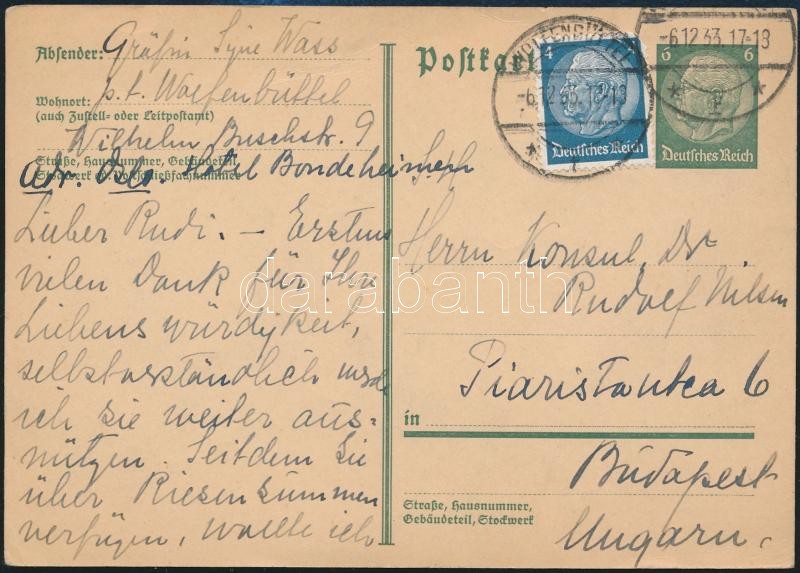 Absender: Gräfin Syne Wass
Wohnort: p. t. Wolfenbüttel
(auch Zustell- oder Leitpostamt)
Wilhelm Buschstr. 9
Straße, Hausnummer, Gebäudeteil
Stockwerk od. Postschließfachnummer
Adr. Oslo. Hotel Bondeheimen
Lieber Rudi. – Erstens
vielen Dank für Ihre
Liebenswürdigkeit,
selbstverständlich werde
ich Sie weiter aus-
nützen. Seitdem Sie
über Riesensummen
verfügen, wollte ich
Postkarte
WOLFENBÜTTEL
-6.12. 18-19
4
Deutsches Reich
-6.12. 17-18
6 6
Deutsches Reich
Herrn Konsul Dr.
Rudolf
Piaristautca 6
in
Budapest
Straße, Hausnummer,
Gebäudeteil, Stockwerk
Ungarn.
darabanth